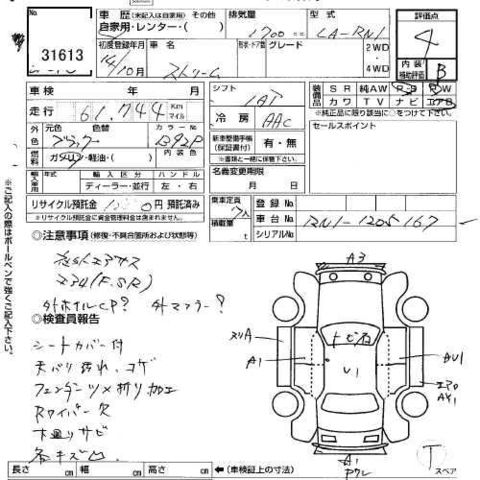 31613
車歴 (未記入は自家用) その他
自家用・レンター・( )
排気量 1700
型式 LA-RN1
評価点 4
内装補助評価 B
初度登録年月 14/10月
車名 ストリーム
形状・ドア数
グレード
2WD
4WD
車検 年 月
シフト IAT
装備品 S R 純AW P・S P・W
カワ T V ナビ エアB
*純正品に限り該当に○をつけて下さい
走行 61,744 Km マイル
冷房 AAC
セールスポイント
外色 元色 色替 カラーNo.
ブラック B92P
新車整備手帳 (保証書付) 有・無
*書類と一緒に提出
燃料 ガソリン・軽油・( )
内装色
名義変更期限
月 日
輸入車用 年式 輸入区分 ハンドル
ディーラー・並行 左・右
リサイクル預託金 円 預託済み
*リサイクル預託金に資金管理料金は含まれません。
乗車定員 7人
積載量 t
登録No.
車台No. RN1-1205167
シリアルNo.
※ご記入の際はボールペンで強くご記入下さい。
◎注意事項 (修復・不具合箇所および状態等)
外ホイルCP? 外マフラー?
◎検査員報告
シートカバー付
天バリ汚れ、コゲ
フェンダーツメ折り加工
Rワイパー欠
下廻りサビ
A3
A1
トビ石
U1
AU1
AY1
A1
T スペア
長さ cm 幅 cm 高さ cm ←(車検証上の寸法)